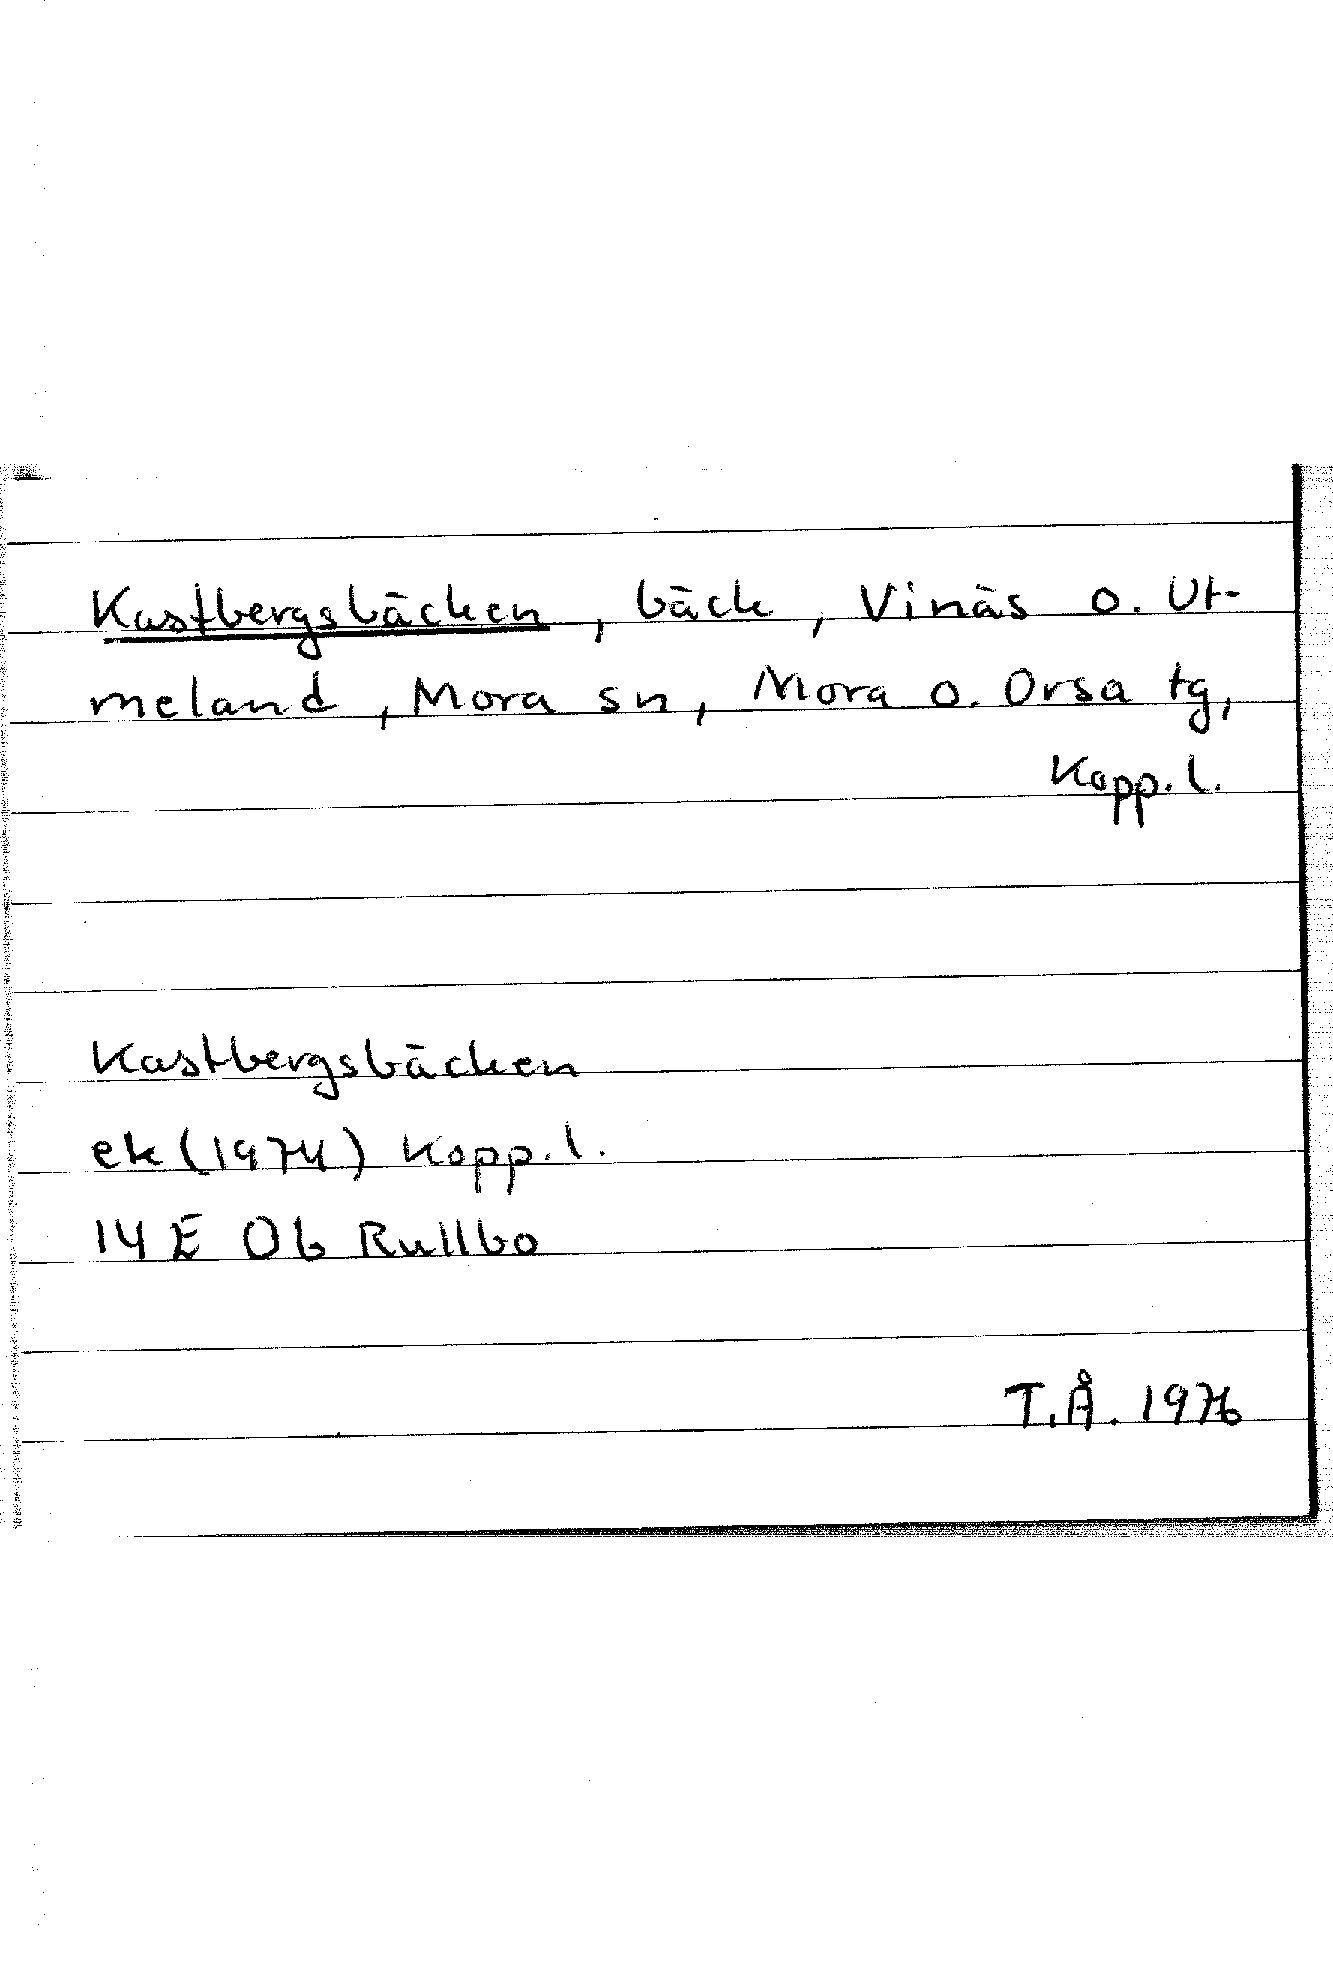 Kastbergsbäcken, bäck, Vinäs o. Ut-
meland, Mora sn, Mora o. Orsa tg,
Kopp. l.
Kastbergsbäcken
ek (1974) Kopp. l.
14 E 0b Rullbo
T.Å. 1976